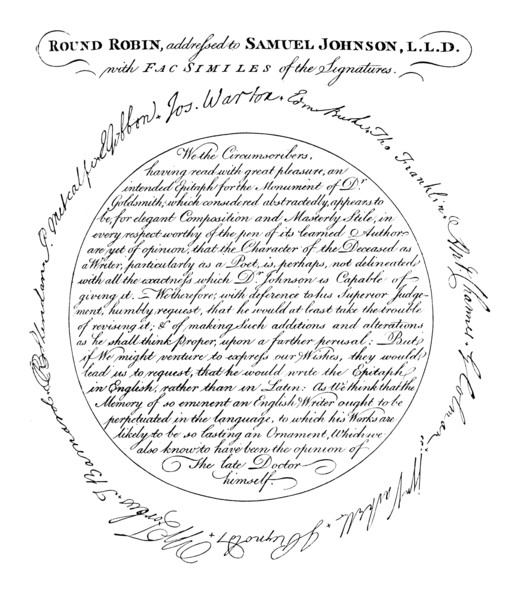 ROUND ROBIN, addressed to SAMUEL JOHNSON, L.L.D.
with FAC SIMILES of the Signatures.
We the Circumscribers,
having read with great pleasure, an
intended Epitaph for the Monument of Dr
Goldsmith; which considered abstractedly, appears to
be, for elegant Composition and Masterly Stile, in
every respect worthy of the pen of its learned Author,
are yet of opinion, that the Character of the Deceased as
a Writer, particularly as a Poet, is, perhaps, not delineated
with all the exactness which Dr Johnson is Capable of
giving it. We therefore, with deference to his Superior Judge-
ment, humbly request, that he would at least take the trouble
of revising it; & of making Such additions and alterations
as he shall think proper, upon a further perusal: But
if We might venture to express our Wishes, they would
lead us to request, that he would write the Epitaph
in English, rather than in Latin: As We think that the
Memory of so eminent an English Writer ought to be
perpetuated in the language, to which his Works are
likely to be so lasting an Ornament, Which we
also know to have been the opinion of
The late Doctor
himself.
Edm Burke.
Tho Franklin.
Ant. Chamier.
G Colman.
Wm Vashell.
J Reynolds.
W Forbes.
T Barnard
R B Sheridan
P. Metcalf
E Gibbon.
Jos. Warton.